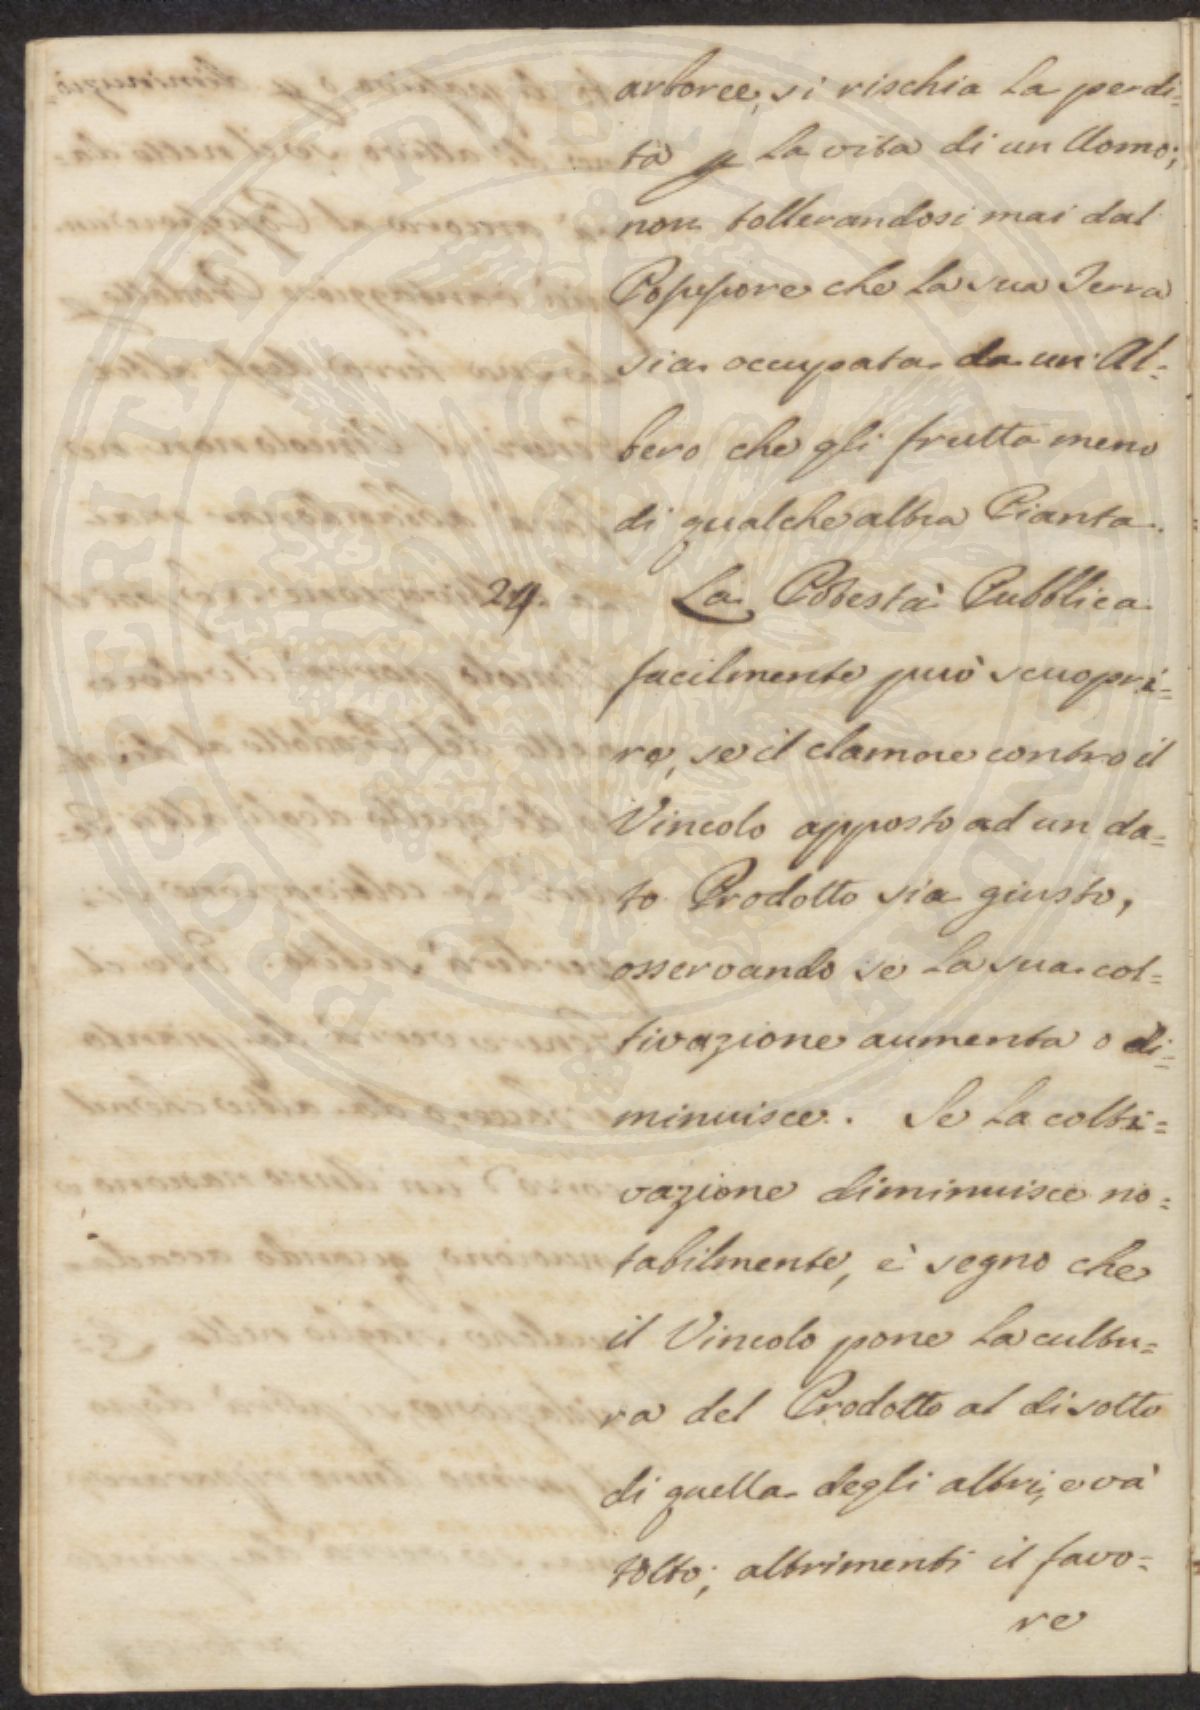 arboree, si rischia la perdi=
ta p la vita di un Uomo;
non tollerandosi mai dal
Possore che la sua Terra
sia occupata da un Al=
bero che gli frutta meno
di qualche altra Pianta.
24. La Potestà Pubblica
facilmente può scuopri=
re, se il clamore contro il
Vincolo apposto ad un da=
to Prodotto sia giusto,
osservando se la sua col=
tivazione aumenta o di=
minuisce. Se la colti=
vazione diminuisce no=
tabilmente, è segno che
il Vincolo pone la cultu=
ra del Prodotto al di sotto
di quella degli altri, e và
tolto; altrimenti il favo=
re
PROSPERITATI PUBLICAE AUGENDAE